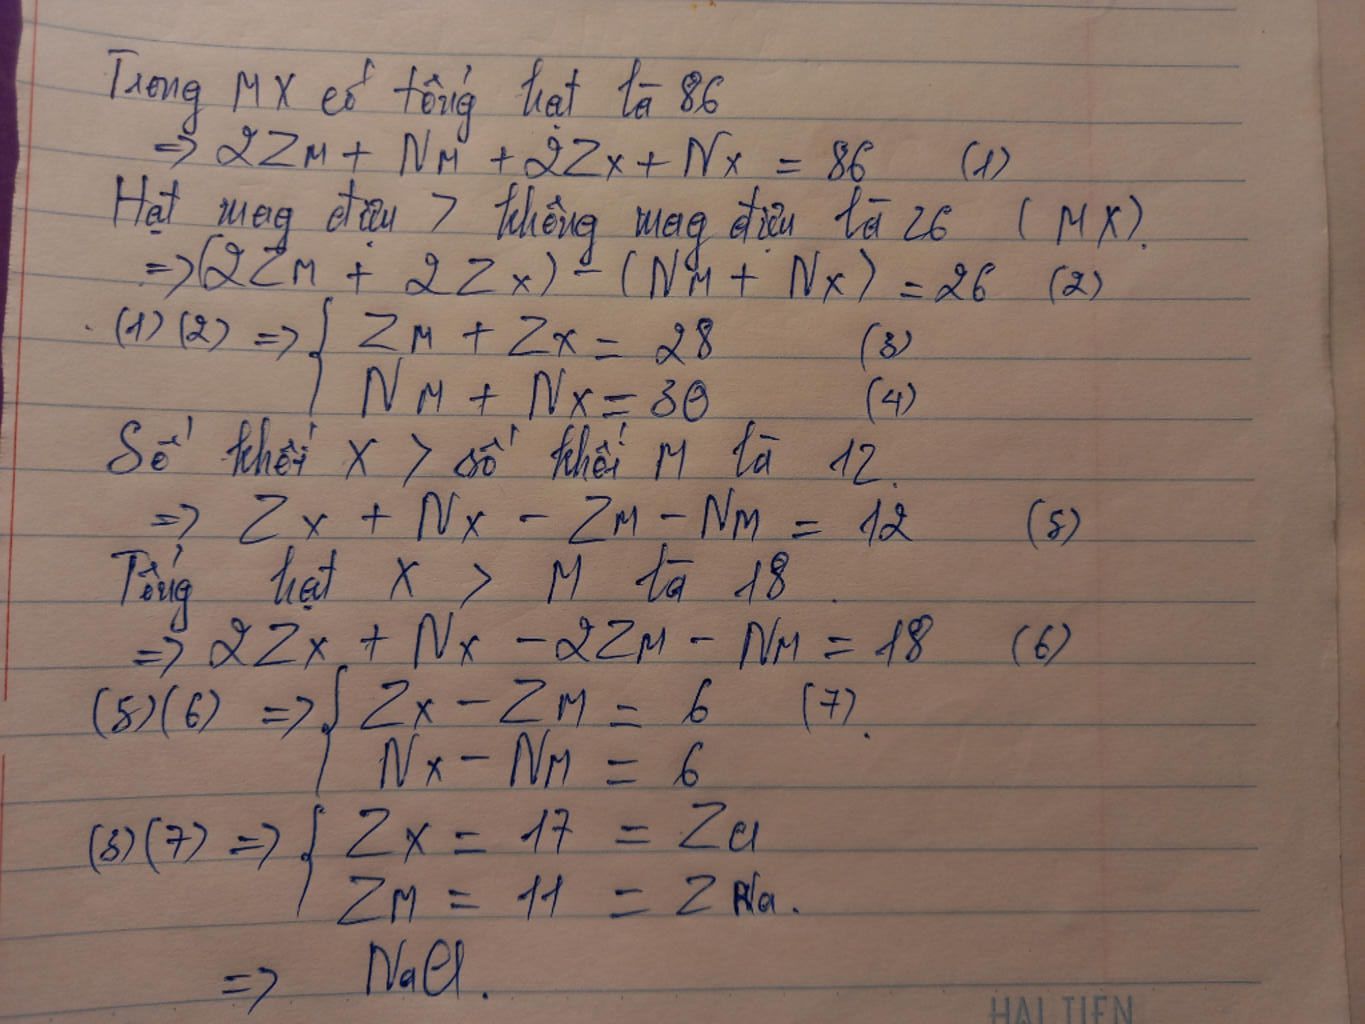 Trong MX có tổng hạt là 86
=> 2ZM + NM + 2ZX + NX = 86 (1)
Hạt mag điện > không mag điện là 26 (MX).
=> (2ZM + 2ZX) - (NM + NX) = 26 (2)
(1) (2) => { ZM + ZX = 28 (3)
NM + NX = 30 (4)
Số khối X > số khối M là 12.
=> ZX + NX - ZM - NM = 12 (5)
Tổng hạt X > M là 18.
=> 2ZX + NX - 2ZM - NM = 18 (6)
(5)(6) => { ZX - ZM = 6 (7).
NX - NM = 6
(3)(7) => { ZX = 17 = ZCl
ZM = 11 = ZNa.
=> NaCl.
HẢI TIẾN